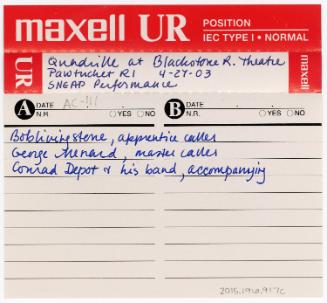 maxell UR POSITION
IEC TYPE I • NORMAL
UR
maxell
Quadrille at Blackstone R. Theatre
Pawtucket RI 4-27-03
SNEAP Performance
A DATE AC-111
N.R. ○YES ○NO
B DATE
N.R. ○YES ○NO
Bob Livingstone, apprentice caller
George Menard, master caller
Conrad Depot & his band, accompanying
2015.1960.917c